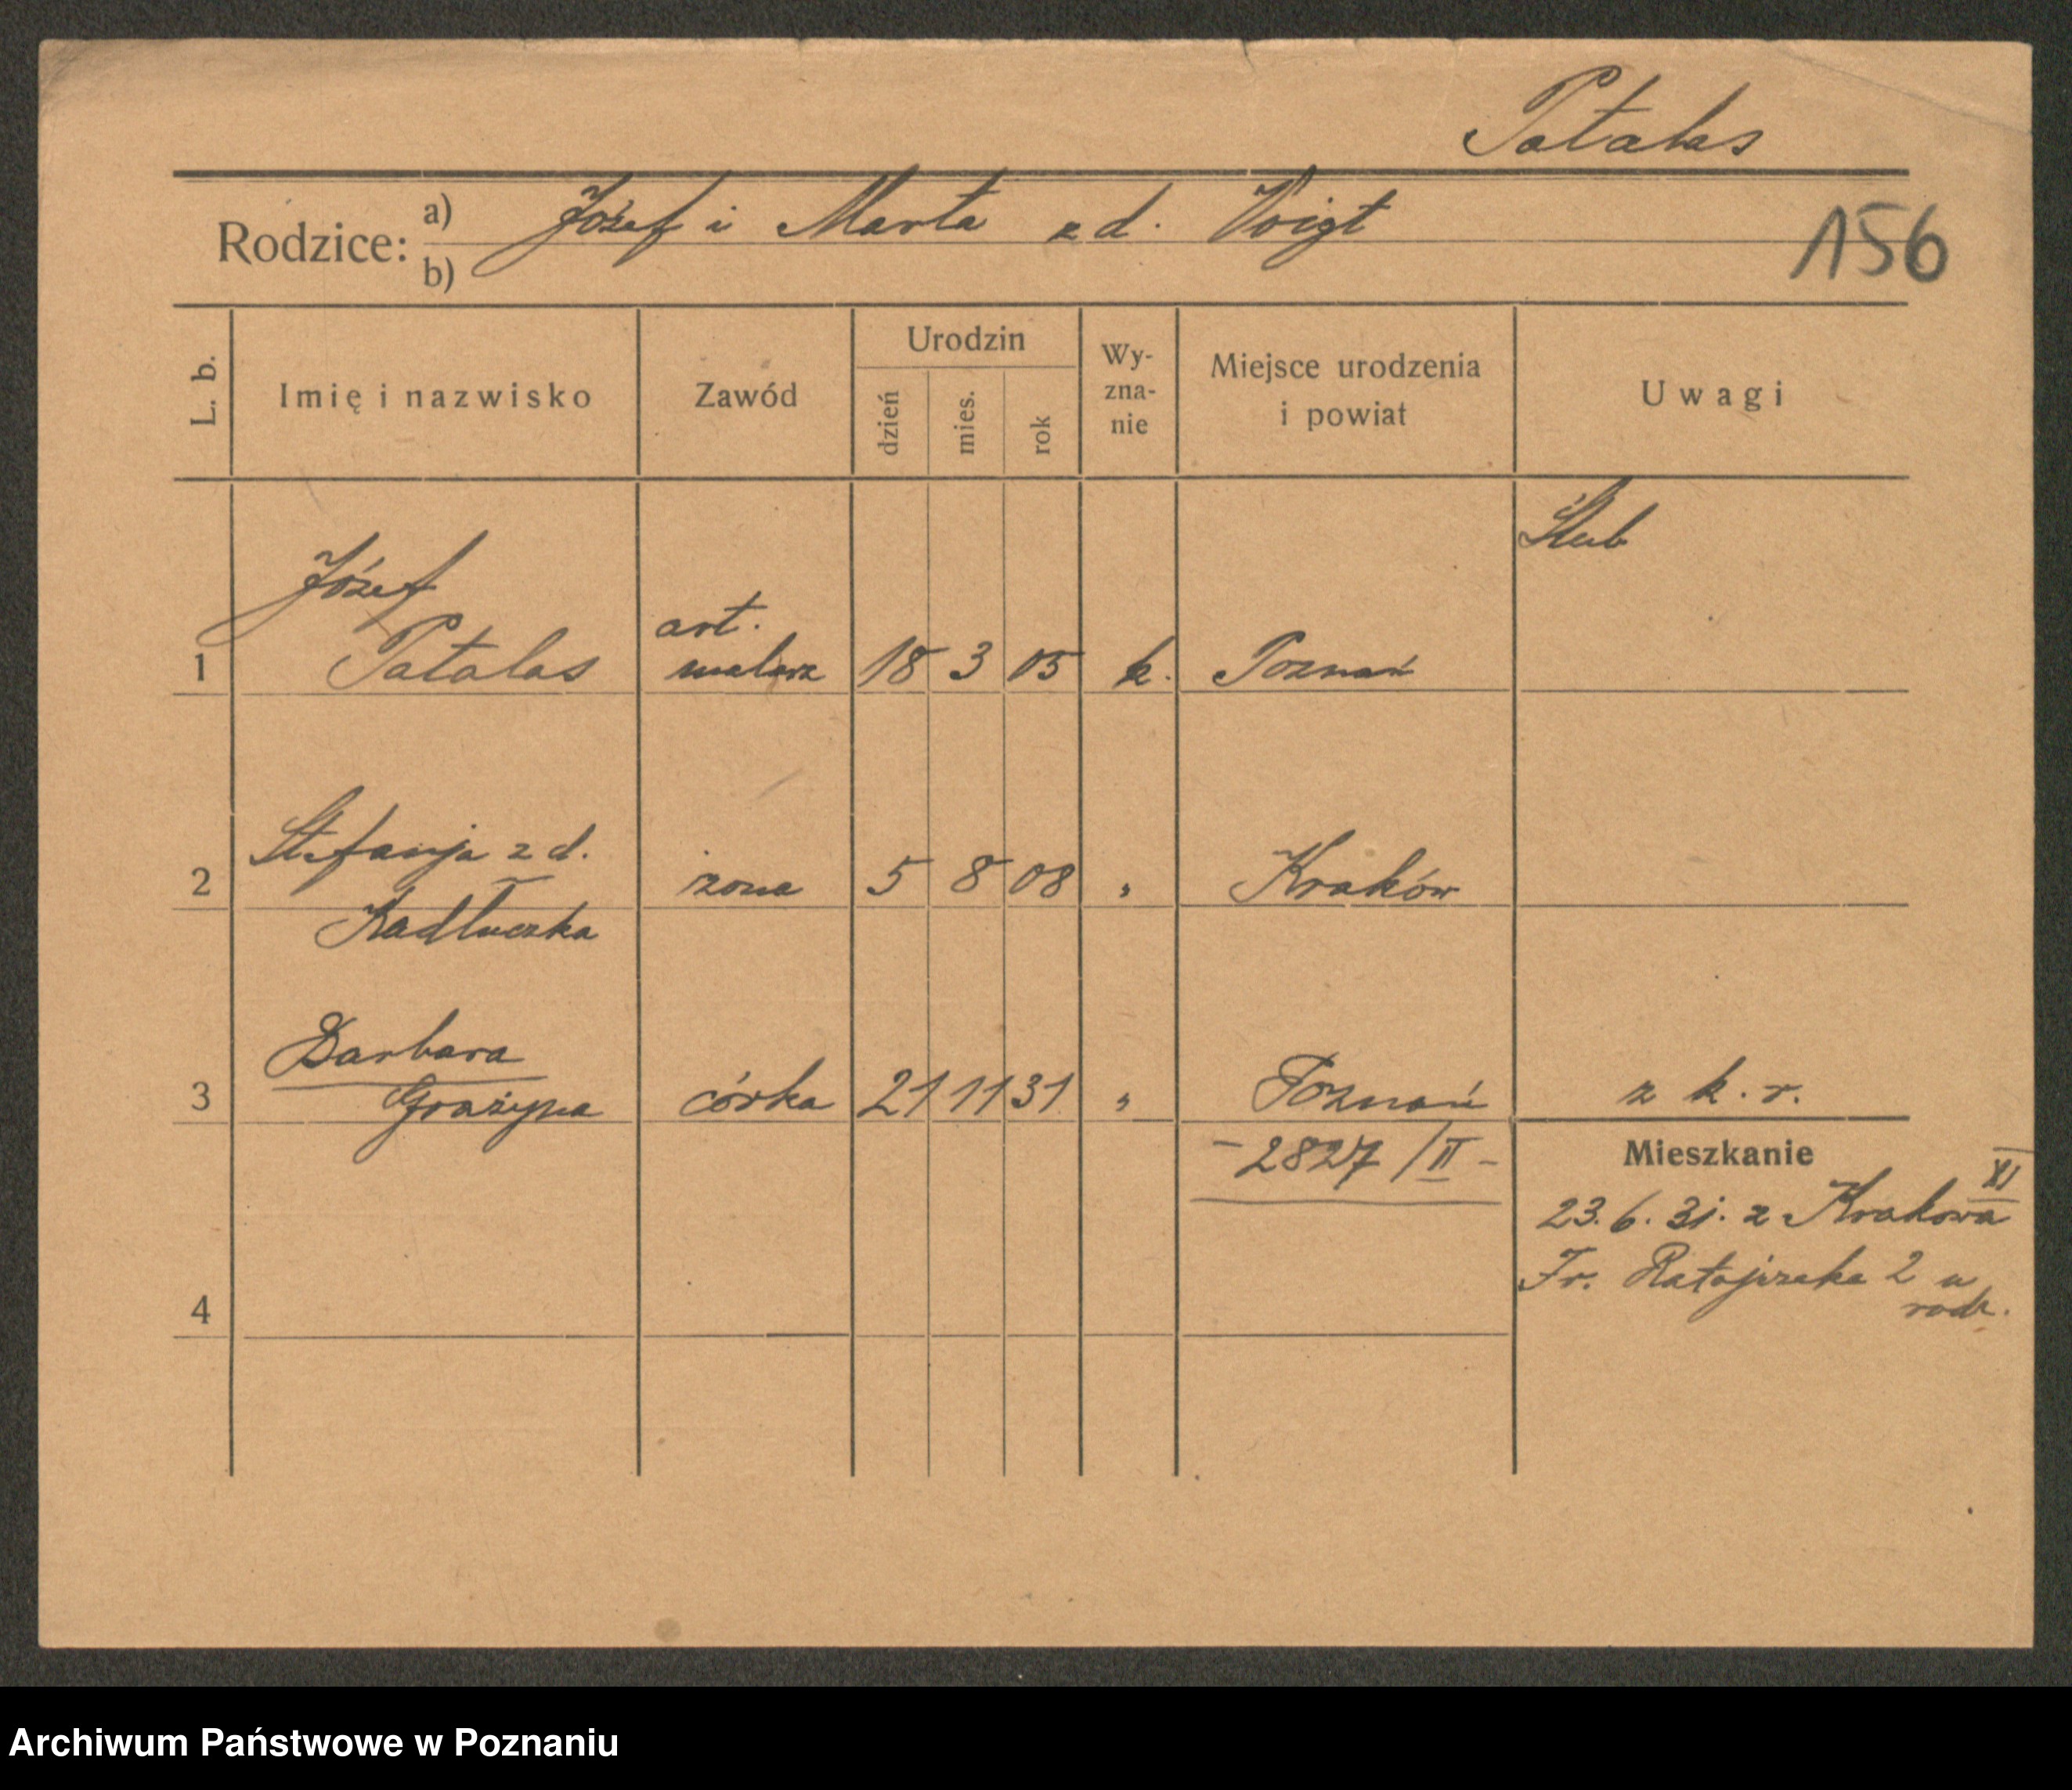 Patalas
Rodzice: a) Józef i Marta z d. Voigt
b)
156
L. b.
Imię i nazwisko
Zawód
Urodzin
dzień
mies.
rok
Wy-
zna-
nie
Miejsce urodzenia
i powiat
Uwagi
Ślub
Józef
1 Patalas art. malarz 18 3 05 k. Poznań
Stefanja z d.
2 żona 5 8 08 " Kraków
Kadłuczka
Barbara
3 Grażyna córka 21 11 31 " Poznań z k. r.
- 2827/II -
Mieszkanie
XI
23. 6. 31. z Krakowa
Fr. Ratajczaka 2 u
rodz.
4
Archiwum Państwowe w Poznaniu